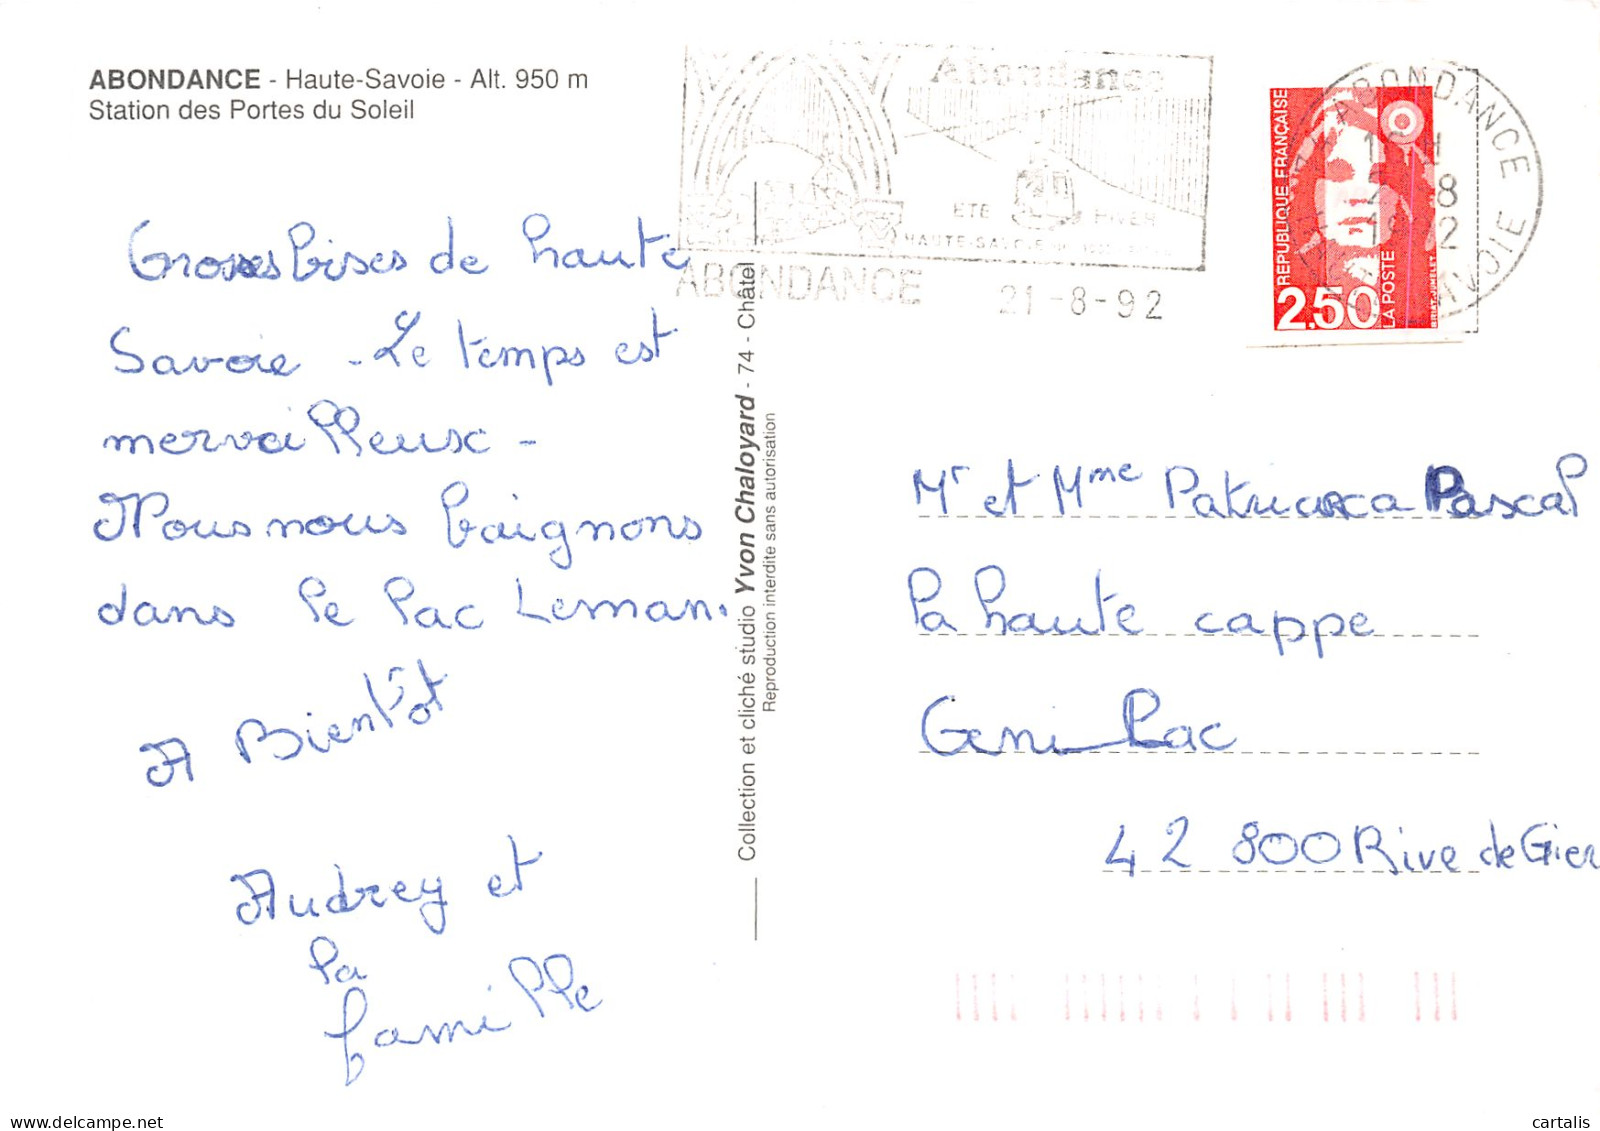 ABONDANCE - Haute-Savoie - Alt. 950 m
Station des Portes du Soleil
Grosses bises de haute
Savoie - Le temps est
merveilleuse -
Nous nous baignons
dans le lac Leman.
A Bientôt
Audrey et
la
famille
Collection et cliché studio Yvon Chaloyard - 74 - Châtel
Reproduction interdite sans autorisation
Abondance
ETE HIVER
HAUTE-SAVOIE
ABONDANCE 21-8-92
REPUBLIQUE FRANÇAISE
2,50
LA POSTE
ABONDANCE
SAVOIE
Mr et Mme Pascal
la haute cappe
Geni Lac
42 800 Rive de Gier
cartalis
delcampe.net